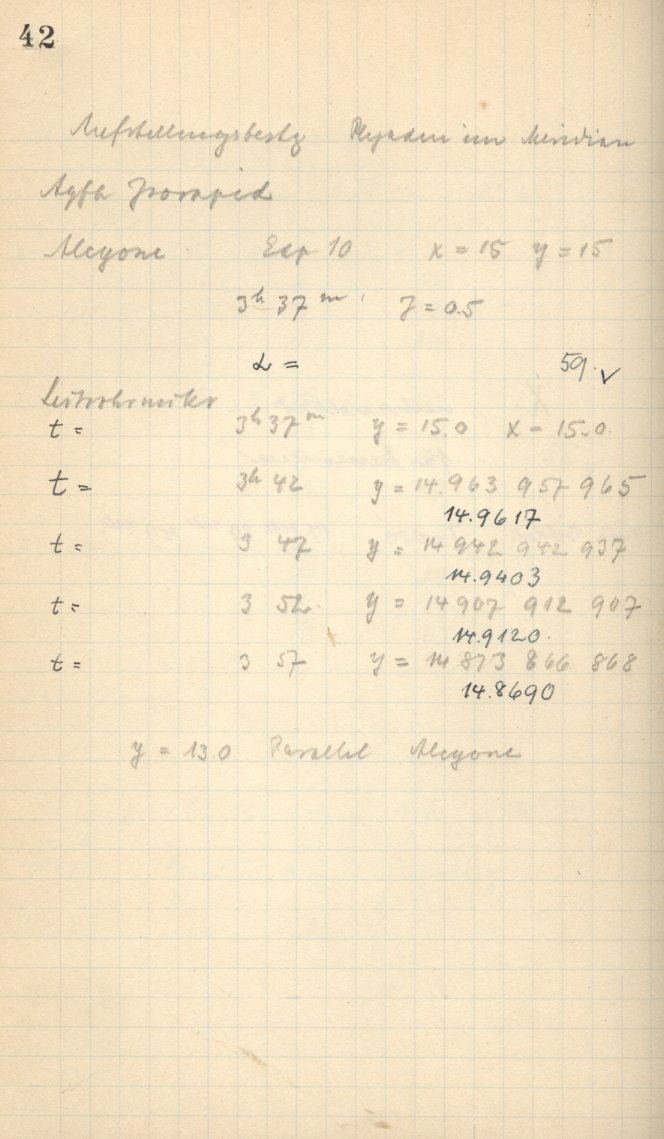 42
Aufstellungsbestg Plejaden im Meridian
Agfa Isorapid
Alcyone Exp 10 x = 15 y = 15
3h 37m z = 0.5
α = 59. √
Leitrohrmikr
t = 3h 37m y = 15.0 x = 15.0
t = 3h 42 y = 14.963 957 965
14.9617
t = 3 47 y = 14 942 942 937
14.9403
t = 3 52. y = 14 907 912 907
14.9120.
t = 3 57 y = 14 873 866 868
14.8690
y = 13.0 Parallel Alcyone